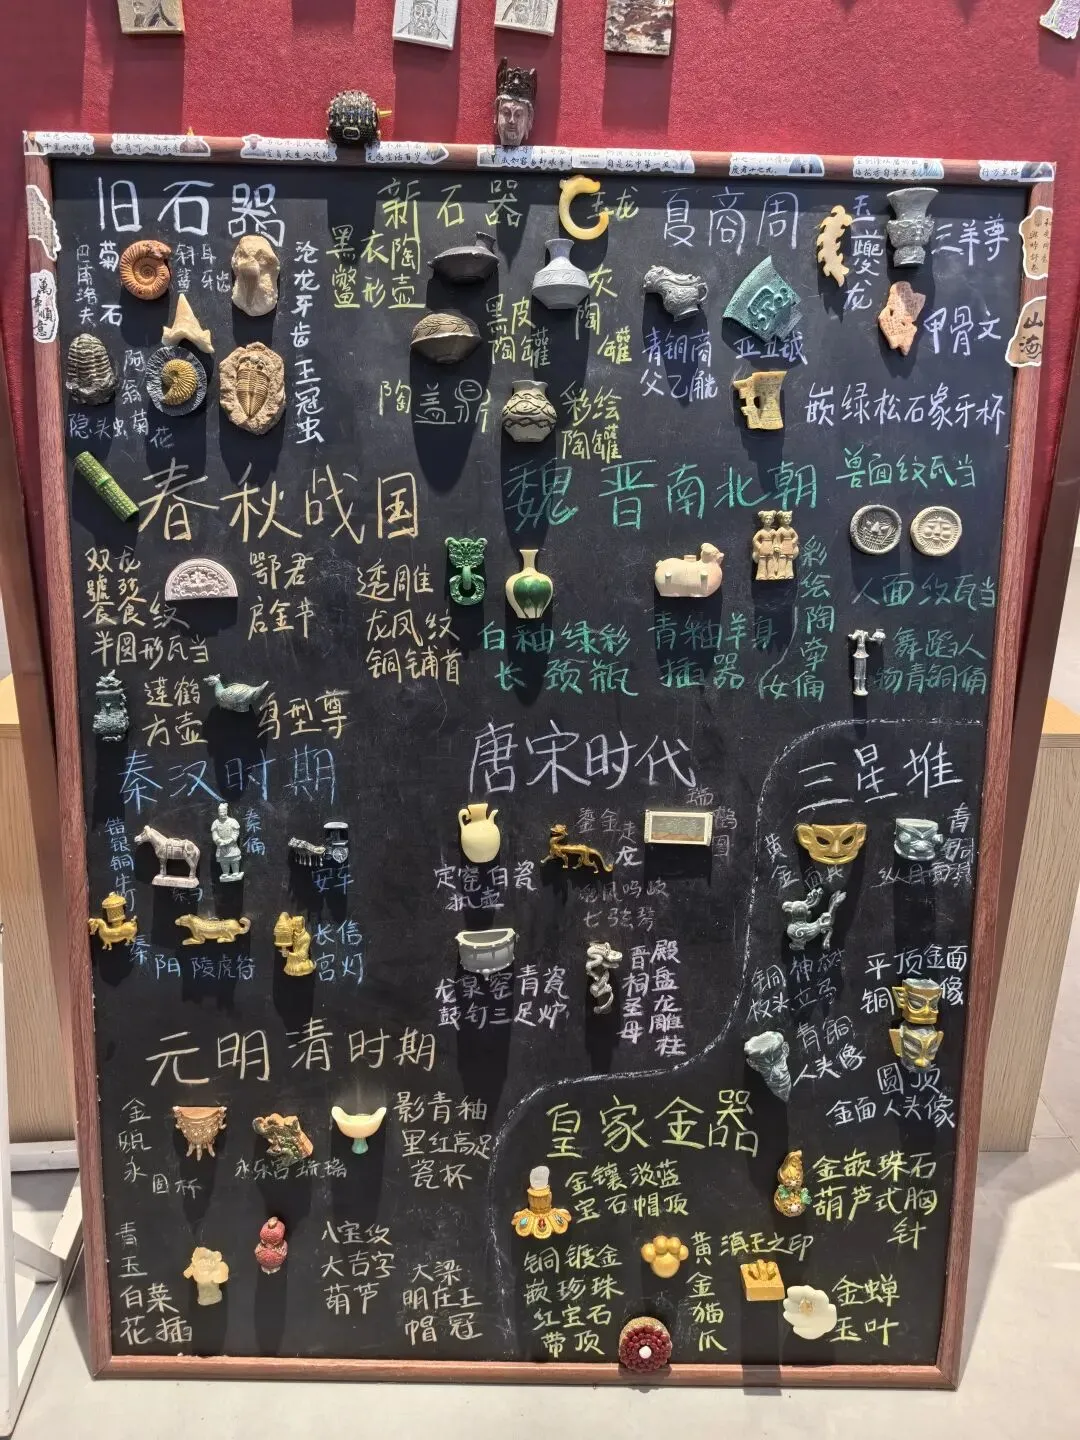 旧石器
巴甫洛夫
菊石
斜耳
鲨牙齿
沧龙牙齿
王冠虫
隐头虫
阿翁菊花
新石器
玉龙
黑衣陶
鳖形壶
黑皮
陶罐
灰陶罐
陶盖
彩绘
陶罐
夏商周
玉夔龙
三羊尊
青铜商
父乙觥
亚丑钺
甲骨文
嵌绿松石象牙杯
春秋战国
双龙
饕餮纹
半圆形瓦当
鄂君
启金节
透雕
龙凤纹
铜铺首
莲鹤
方壶
鸟型尊
魏晋南北朝
兽面纹瓦当
人面纹瓦当
白釉绿彩
长颈瓶
青釉羊身
插器
彩绘陶牵女俑
舞蹈人
物青铜俑
秦汉时期
错银铜牛灯
秦俑
安车
秦
阳陵虎符
长信
宫灯
唐宋时代
定窑白瓷
执壶
鎏金
走龙
瑞鹤图
七弦琴
龙泉窑青瓷
鼓钉三足炉
晋祠圣母
殿盘龙雕柱
三星堆
黄金面具
青铜
纵目面具
铜神树
枝头立鸟
平顶金面
铜像
青铜
人头像
圆顶
金面人头像
元明清时期
金瓯永固杯
永乐宫琉璃
影青釉
里红高足
瓷杯
青玉
白菜
花插
八宝纹
大吉字
葫芦
大梁
明庄王
帽冠
皇家金器
金镶淡蓝
宝石帽顶
金嵌珠石
葫芦式胸针
铜镀金
嵌珍珠
红宝石
带顶
黄金猫爪
滇王之印
金蝉
玉叶
山海